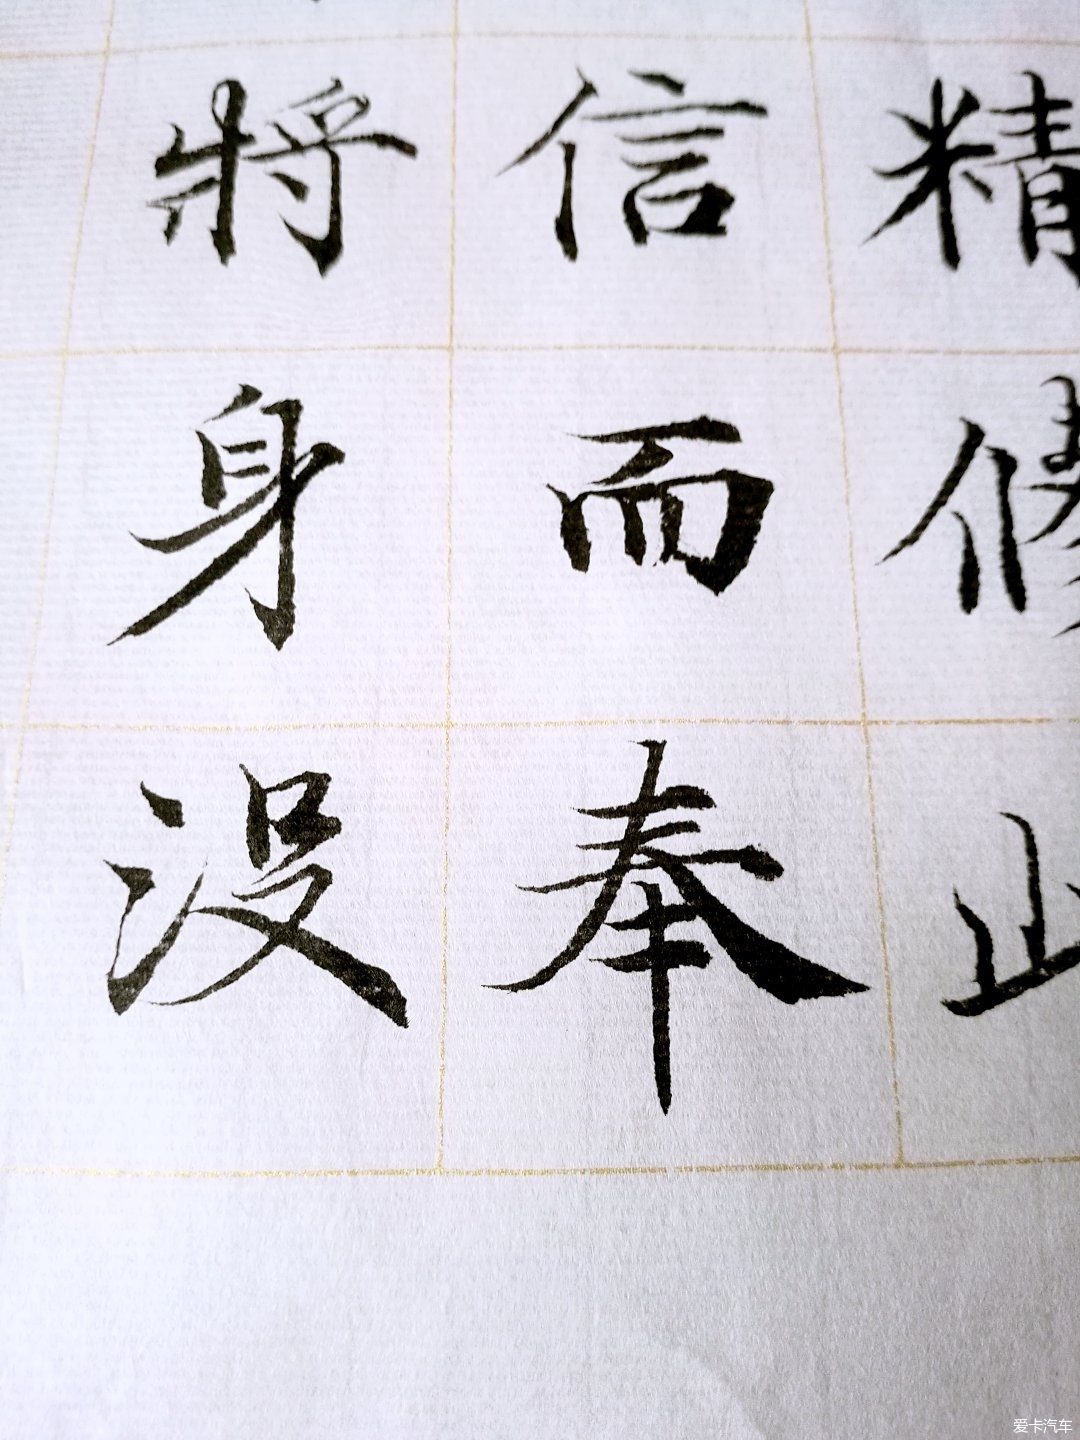 精修
信而奉
將身没
爱卡汽车